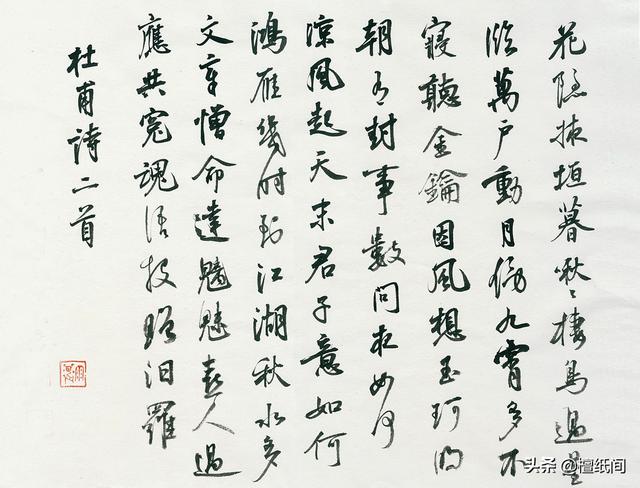 花隱掖垣暮啾々棲鳥過星
臨萬户動月傍九霄多不
寢聽金鑰因風想玉珂明
朝有封事數問夜如何
涼風起天末君子意如何
鴻雁幾時到江湖秋水多
文章憎命達魑魅喜人過
應共冤魂語投贈汨羅
杜甫詩二首
头条 @檀纸间